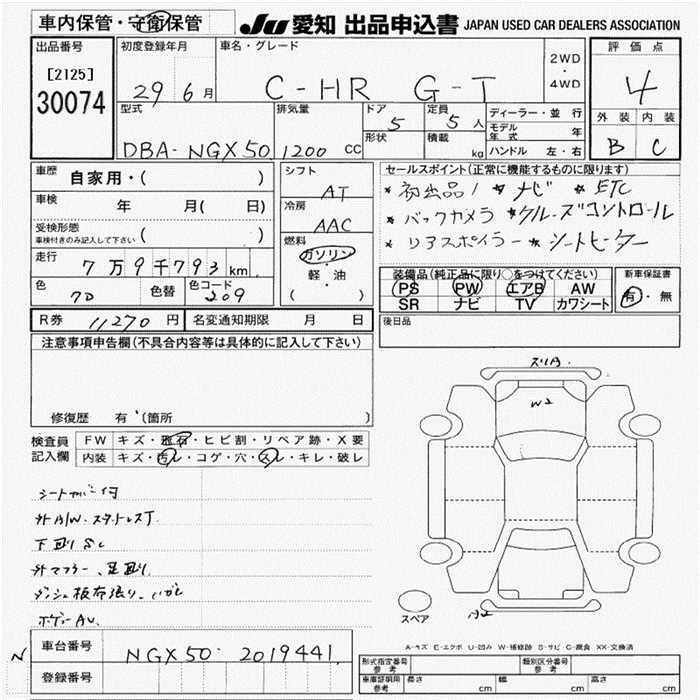 車内保管・守衛保管 JU 愛知 出品申込書 JAPAN USED CAR DEALERS ASSOCIATION
出品番号 初度登録年月 車名・グレード 評価点
[2125] 2WD
30074 29 6月 C-HR G-T ・ 4
4WD
型式 排気量 ドア 定員 ディーラー・並行 外装 内装
5 5人 モデル年式 年
形状 積載
DBA-NGX50 1200 CC kg ハンドル 左・右 B C
車歴 シフト セールスポイント(正常に機能するものに限ります)
自家用・( ) AT * 初出品! * ナビ * ETC
車検 年 月( 日) 冷房 * バックカメラ * クルーズコントロール
AAC * リアスポイラー * シートヒーター
受検形態
車検付きのみ記入して下さい ( ) 燃料
走行 ガソリン 装備品(純正品に限り○をつけてください) 新車保証書
7万9千793km 軽・油 PS PW エアB AW 有・無
色 色替 色コード ( ) SR ナビ TV カワシート
209
R券 11270円 名変通知期限 月 日 後日品
注意事項申告欄(不具合内容等は具体的に記入して下さい)
W2
修復歴 有(箇所
検査員 FW キズ・飛石・ヒビ割・リペア跡・X要
記入欄 内装 キズ・汚レ・コゲ・穴・スレ・キレ・破レ
シートカバー付
外A/W・スタットレスT
下廻りサビ
外マフラー、足廻り
スペア
車台番号 NGX50-2019441
N
登録番号
A-キズ E-エクボ U-凹み W-補修跡 S-サビ C-腐食 XX-交換済
形式指定番号 参考 類別区分番号 参考
車庫証明用 参考 長さ cm 幅 cm 高さ cm